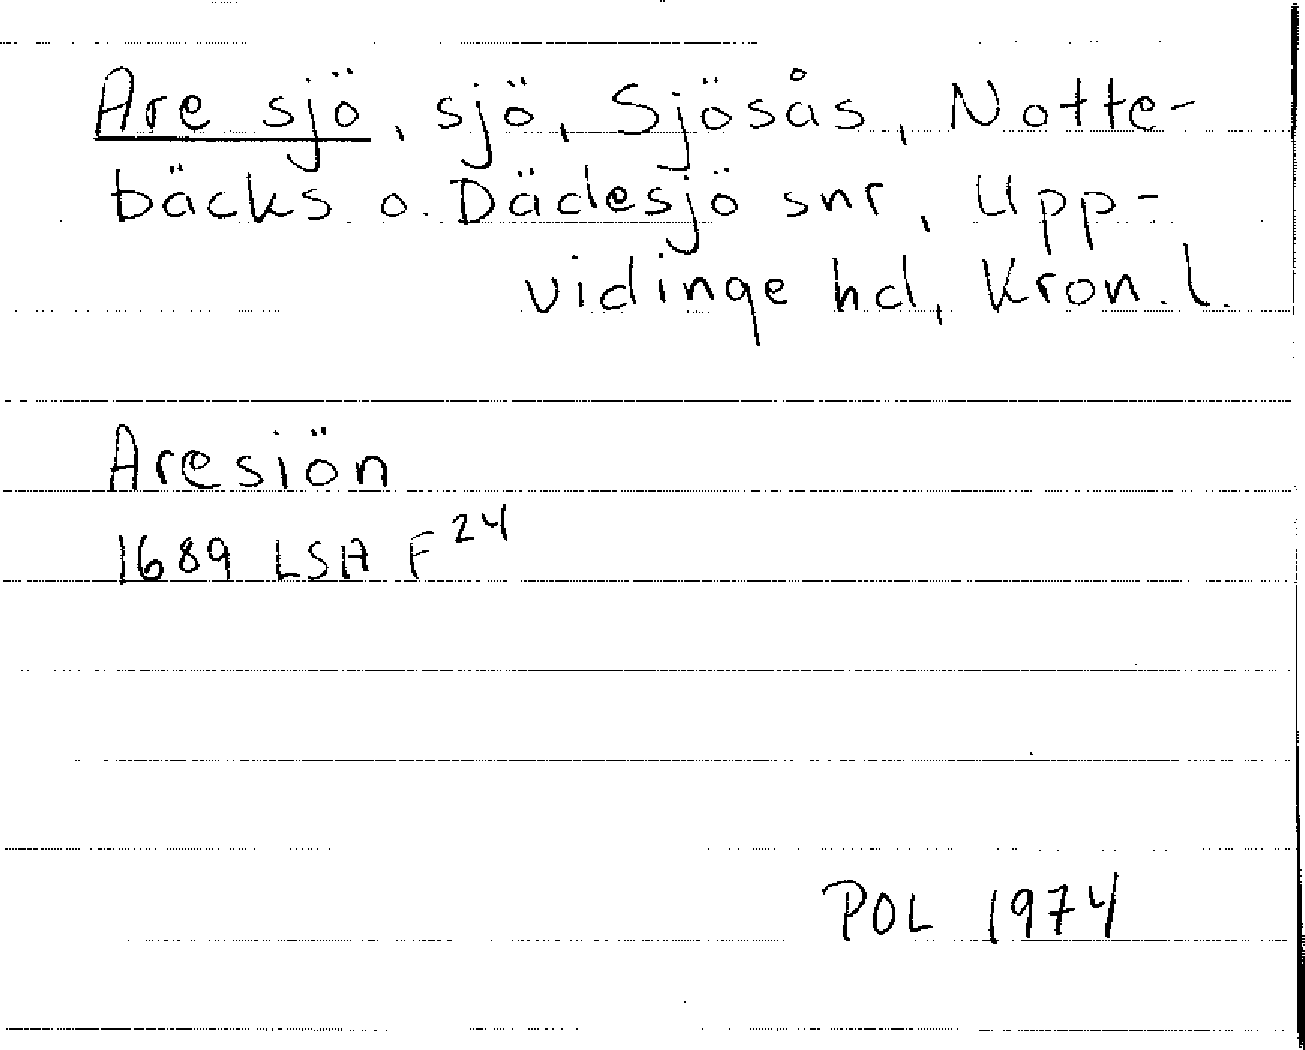 Are sjö, sjö, Sjösås, Notte-
bäcks o. Dädesjö snr, Upp-
vidinge hd, Kron. l.
Aresiön
1689 LSA F 24
POL 1974